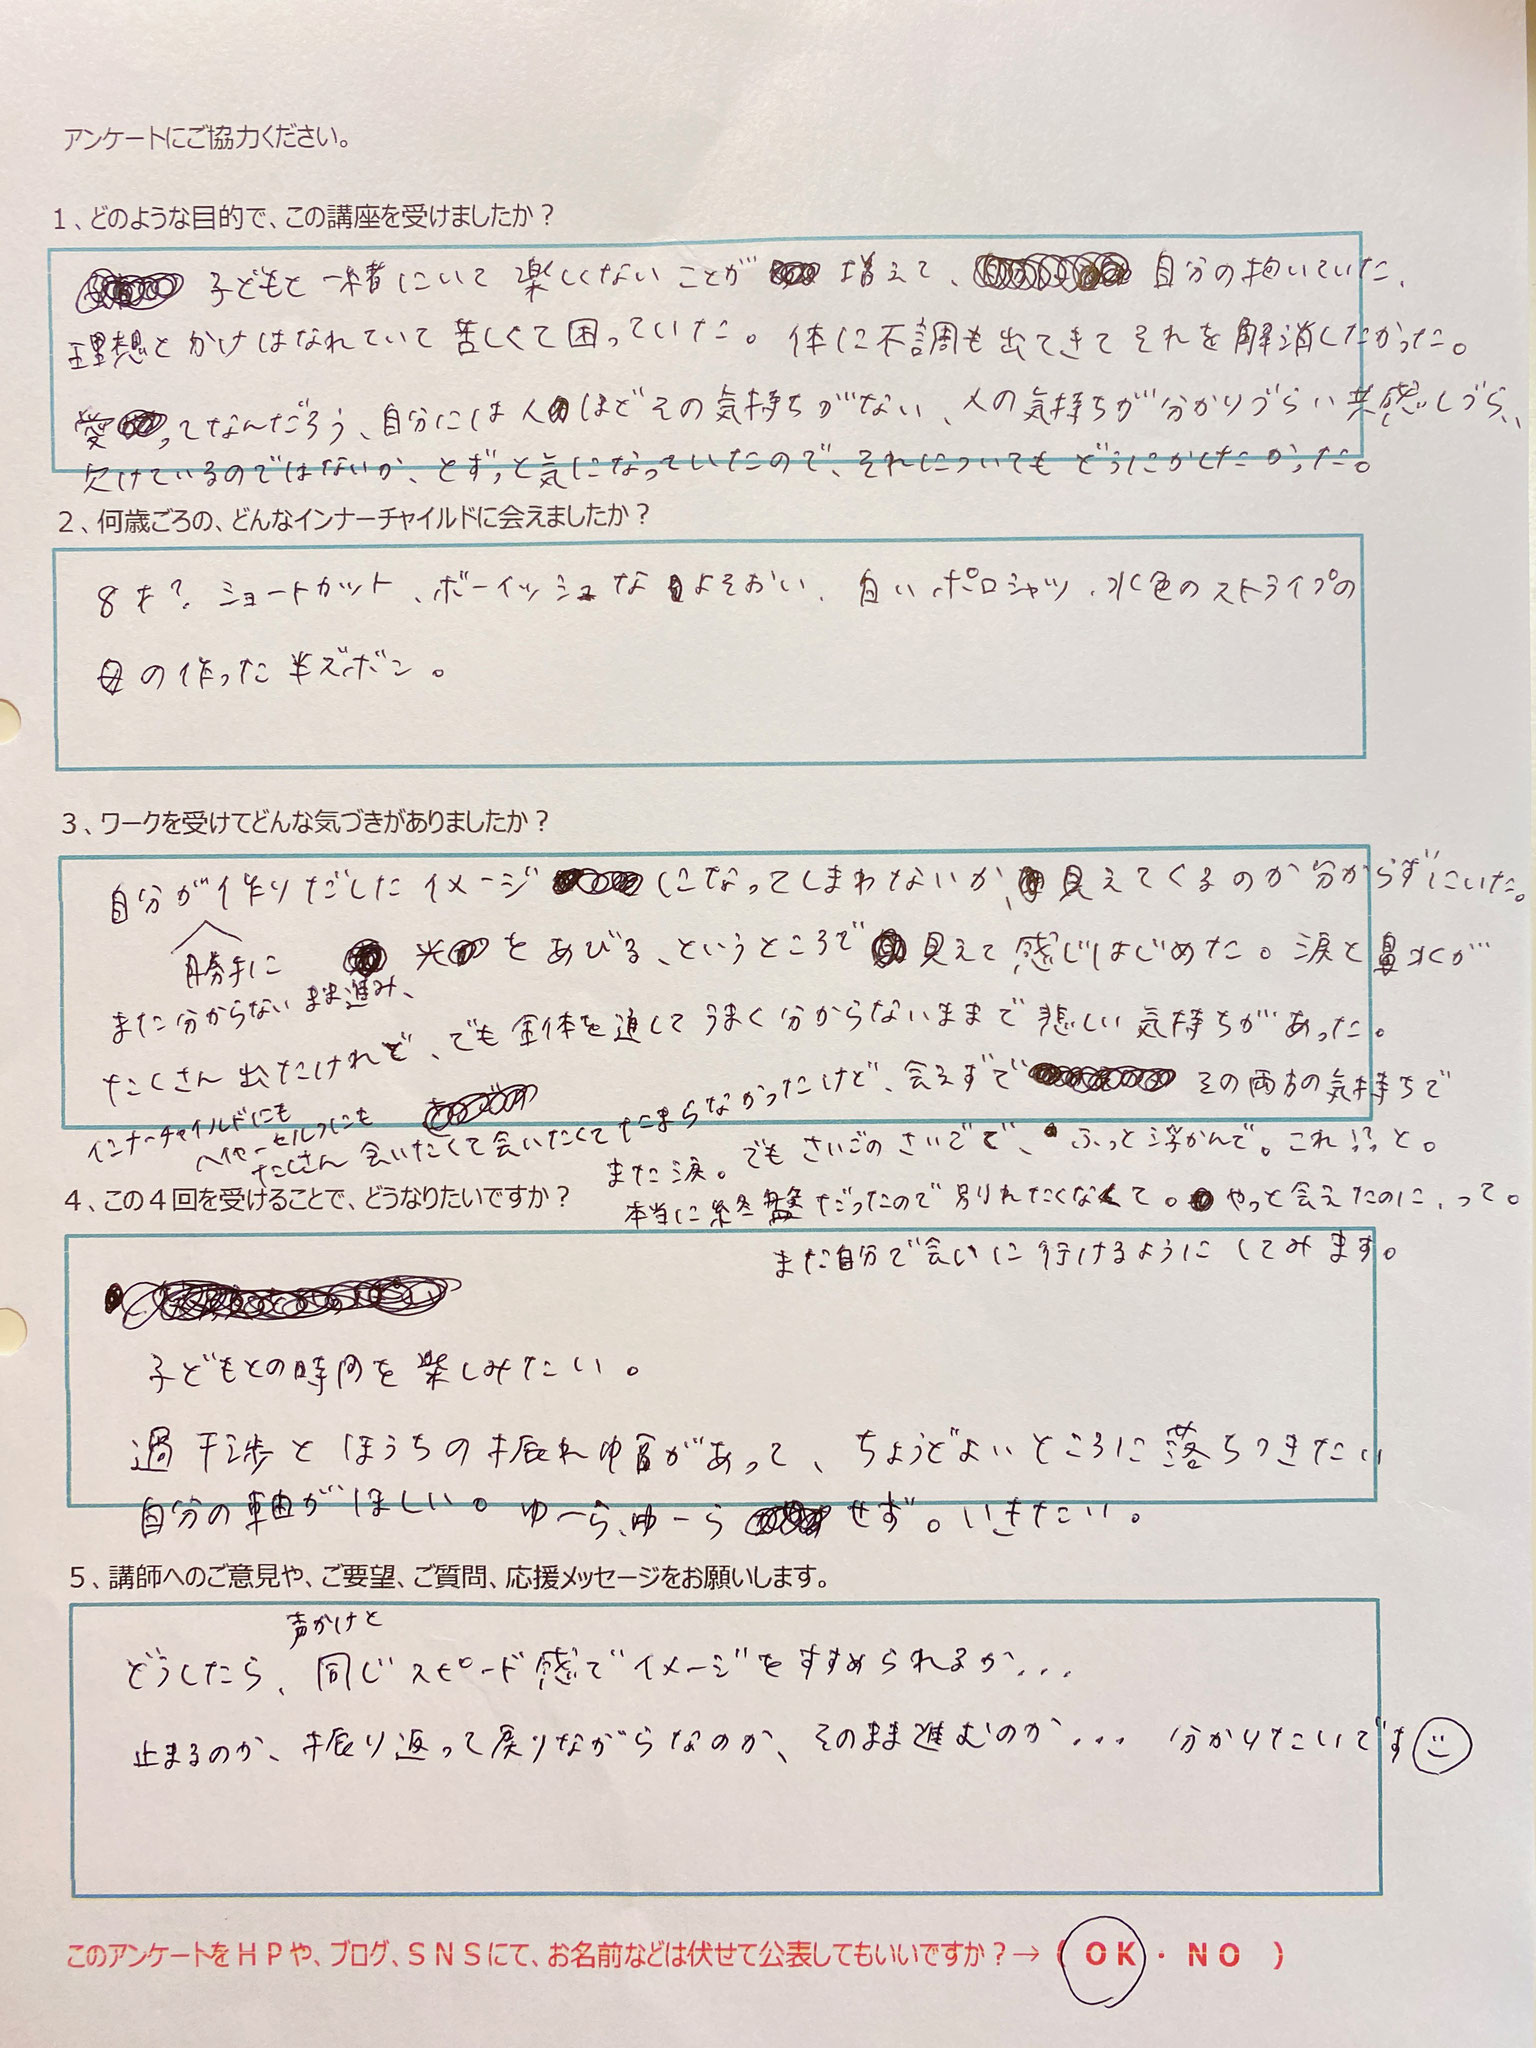 アンケートにご協力ください。
1、どのような目的で、この講座を受けましたか？
子どもと一緒にいて楽しくないことが増えて、自分の抱いていた、
理想とかけはなれていて苦しくて困っていた。体に不調も出てきてそれを解消したかった。
愛ってなんだろう、自分には人ほどその気持ちがない、人の気持ちが分かりづらい共感しづら、、
欠けているのではないか、とずっと気になっていたので、それについてもどうにかしたかった。
2、何歳ごろの、どんなインナーチャイルドに会えましたか？
8才？ショートカット、ボーイッシュなよそおい、白いポロシャツ、水色のストライプの
母の作った半ズボン。
3、ワークを受けてどんな気づきがありましたか？
自分が作りだしたイメージになってしまわないか、見えてくるのか分からずにいた。
勝手に
光をあびる、というところで見えて感じはじめた。涙と鼻水が
まだ分からないまま進み、
たくさん出たけれど、でも全体を通してうまく分からないままで悲しい気持ちがあった。
インナーチャイルドにも
ハイヤーセルフにも
たくさん会いたくて会いたくてたまらなかったけど、会えずでその両方の気持ちで
また涙。でもさいごのさいごで、ふっと浮かんで。これ!?と。
本当に終盤だったので別れたくなくて。やっと会えたのに、って。
また自分で会いに行けるようにしてみます。
4、この4回を受けることで、どうなりたいですか？
子どもとの時間を楽しみたい。
過干渉とほうちの振れ幅があって、ちょうどよいところに落ちつきたい
自分の軸がほしい。ゆーら、ゆーらせず。いきたい。
5、講師へのご意見や、ご要望、ご質問、応援メッセージをお願いします。
声かけと
どうしたら、同じスピード感でイメージをすすめられるか...
止まるのか、振り返って戻りながらなのか、そのまま進むのか... 分かりたいです
このアンケートをHPや、ブログ、SNSにて、お名前などは伏せて公表してもいいですか？→（ OK・NO ）